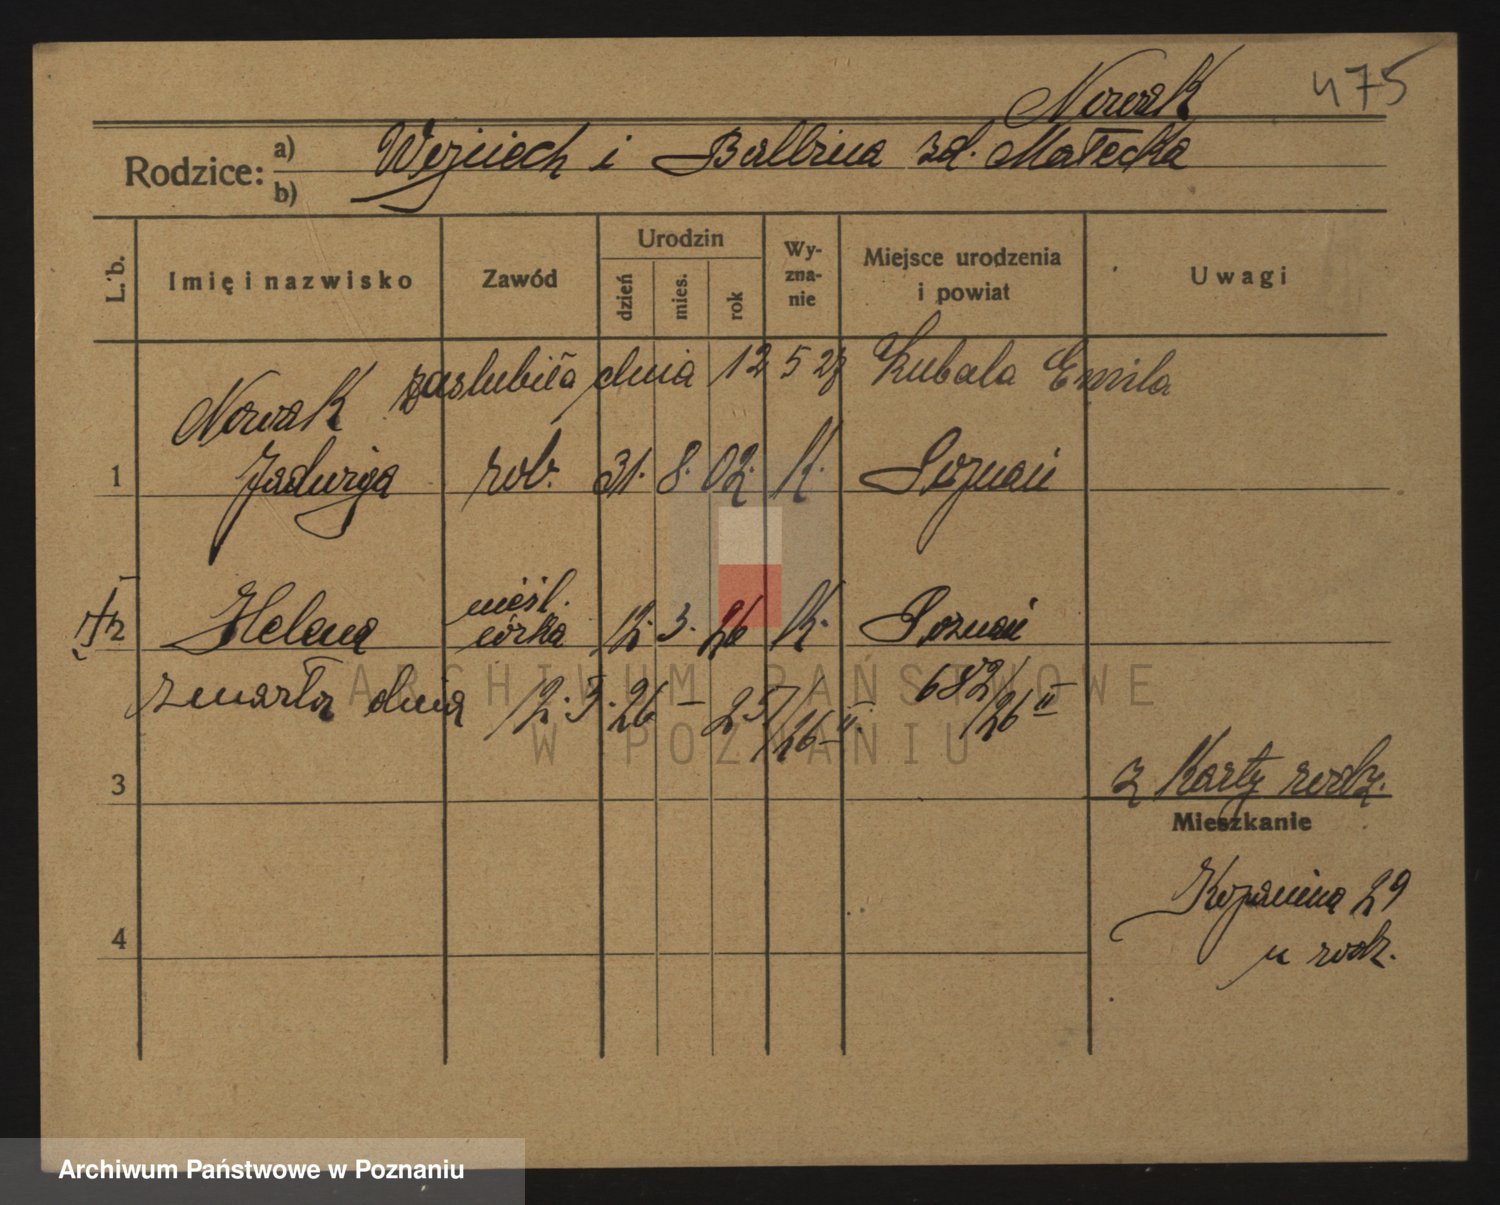 475
Nowak
Rodzice: a) Wojciech i Balbina zd. Małecka
b)
L. b.
Imię i nazwisko
Zawód
Urodzin
dzień
mies.
rok
Wy-
zna-
nie
Miejsce urodzenia
i powiat
Uwagi
zaslubiła dnia 12 5 27 Kubala Emila
Nowak
1 Jadwiga rob. 31. 8. 02. K. Poznań
nieśl.
2 Helena córka 12. 3. 26 K. Poznań
zmarła dnia 12. 3. 26 – 257/26 II. 682/26 II
3
z Karty rodz.
Mieszkanie
Kopanina 29
4
u rodz.
ARCHIWUM PAŃSTWOWE
W POZNANIU
Archiwum Państwowe w Poznaniu